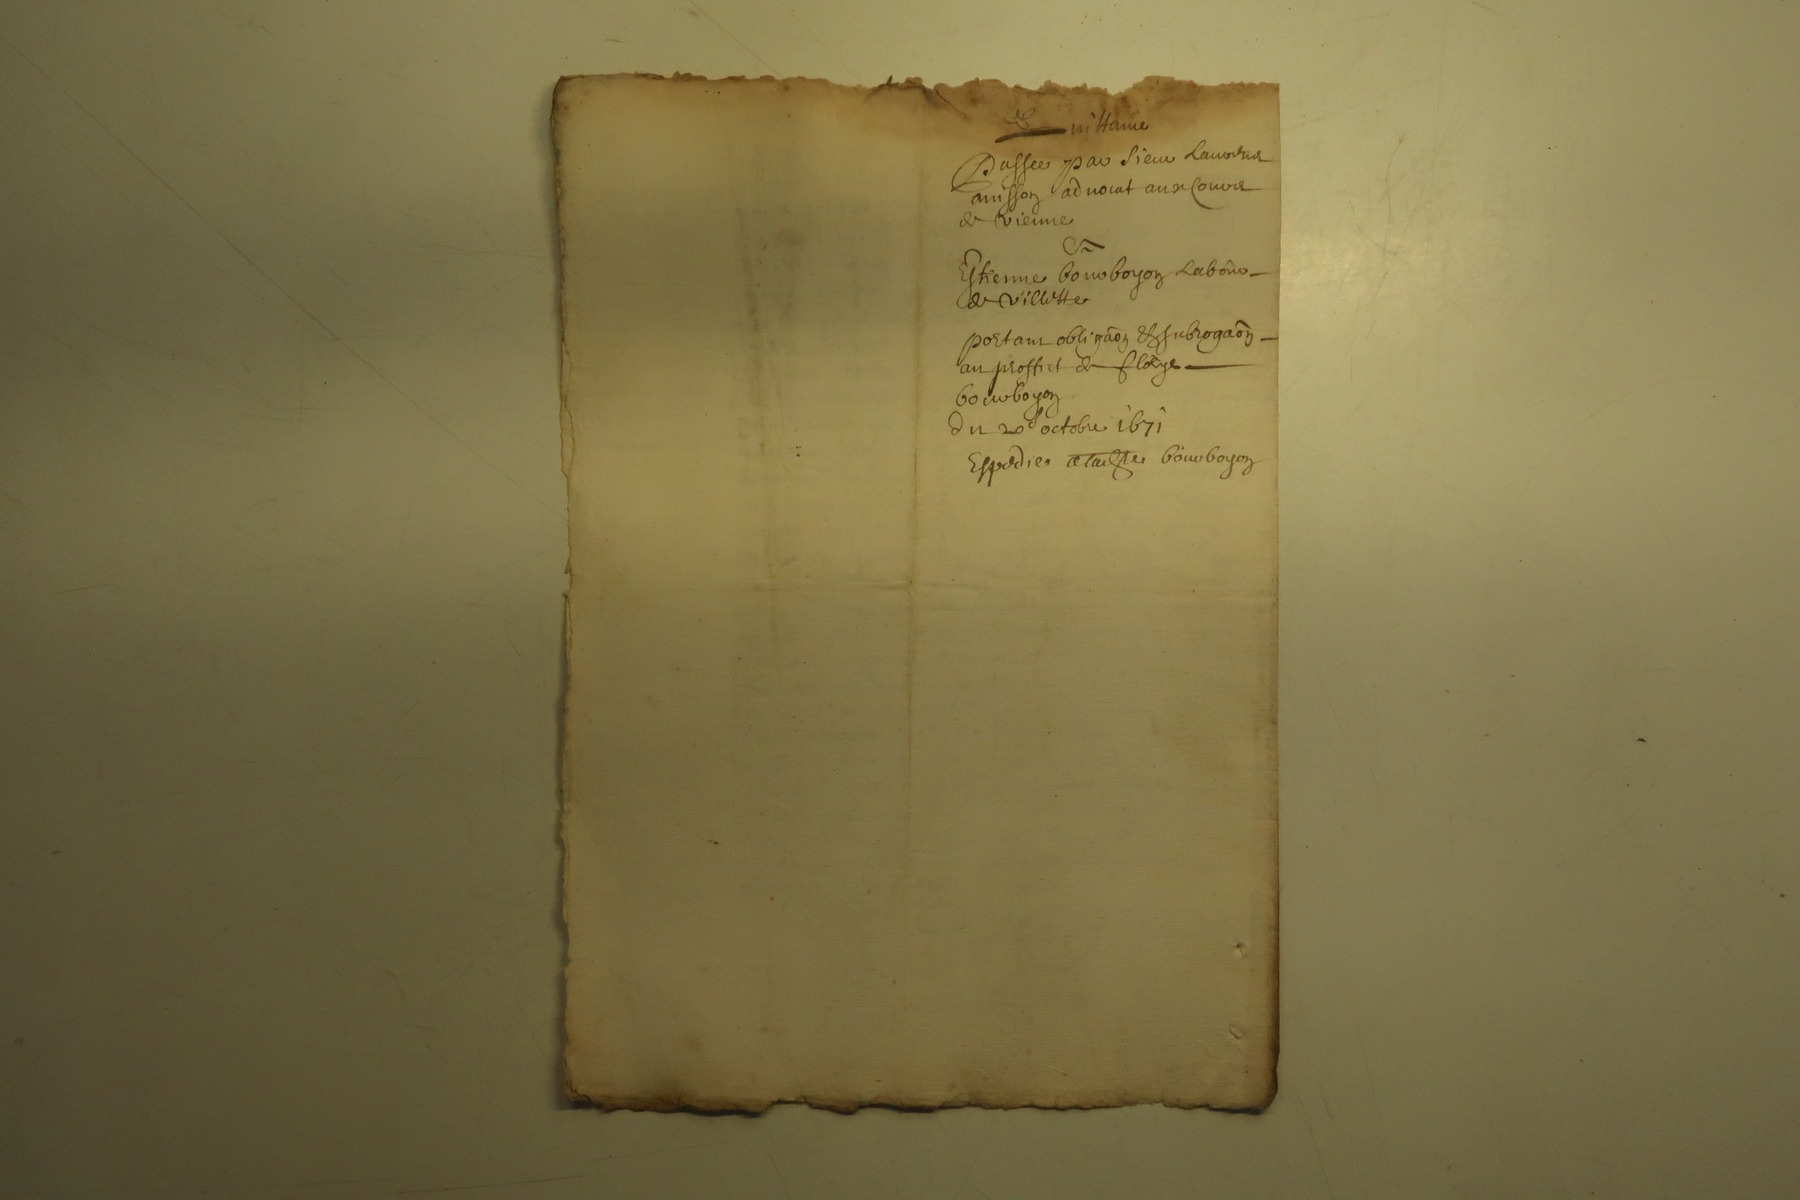 Quittance
Passee par Sieur Laurens
anisson advocat aux Cours
de Vienne
A
Estienne bourboyon Labour
de Villette
portant obliga͠on & subroga͠on
au proffict de Cloud
bourboyon
du 20e octobre 1671
Expedie bourboyon